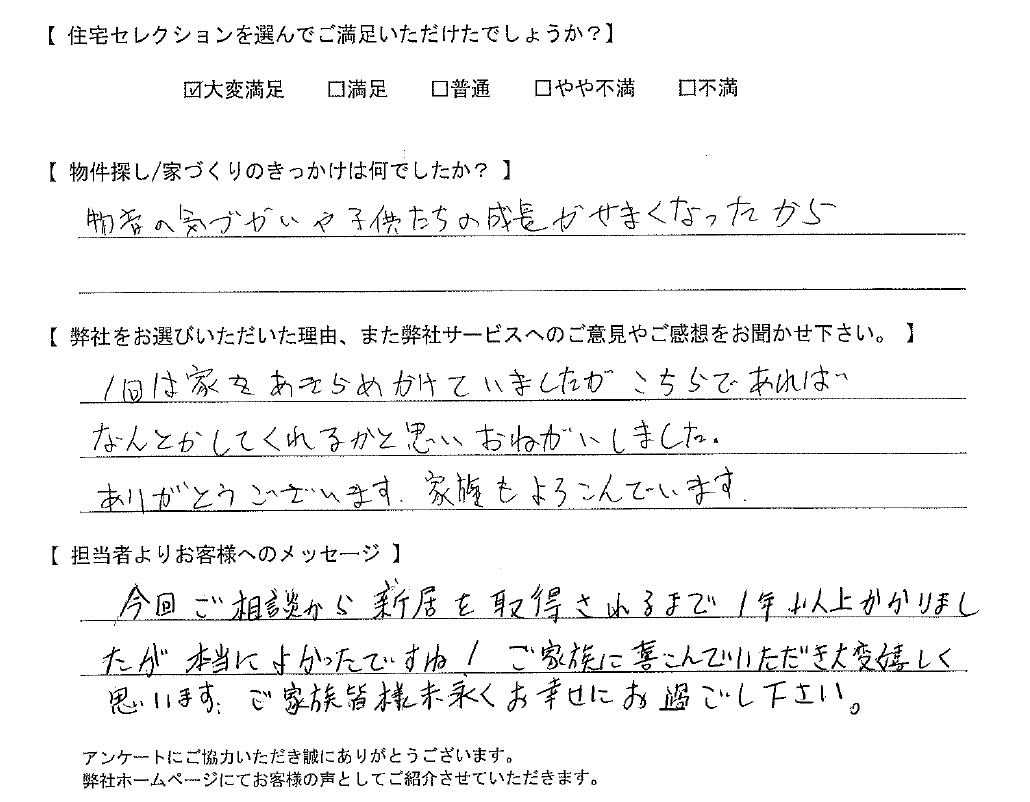 【 住宅セレクションを選んでご満足いただけたでしょうか?】
☑大変満足 □満足 □普通 □やや不満 □不満
【 物件探し/家づくりのきっかけは何でしたか? 】
の気づかいや子供たちの成長がせまくなったから
【 弊社をお選びいただいた理由、また弊社サービスへのご意見やご感想をお聞かせ下さい。 】
1回は家をあきらめかけていましたがこちらであれば
なんとかしてくれるかと思いおねがいしました。
ありがとうございます. 家族もよろこんでいます.
【 担当者よりお客様へのメッセージ 】
今回ご相談から新居を取得されるまで1年以上かかりまし
たが本当によかったですね! ご家族に喜こんでいただき大変嬉しく
思います。ご家族皆様末永くお幸せにお過ごし下さい。
アンケートにご協力いただき誠にありがとうございます。
弊社ホームページにてお客様の声としてご紹介させていただきます。